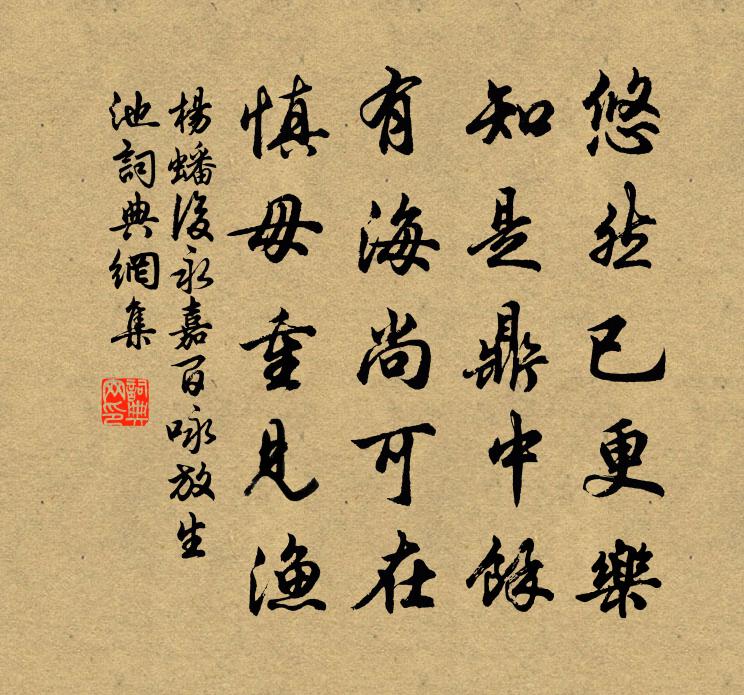 悠然已更樂
知是鼎中餘
有海尚可在
慎毋重見漁
楊蟠後永嘉百咏放生
池詞典網集
詞典
网印